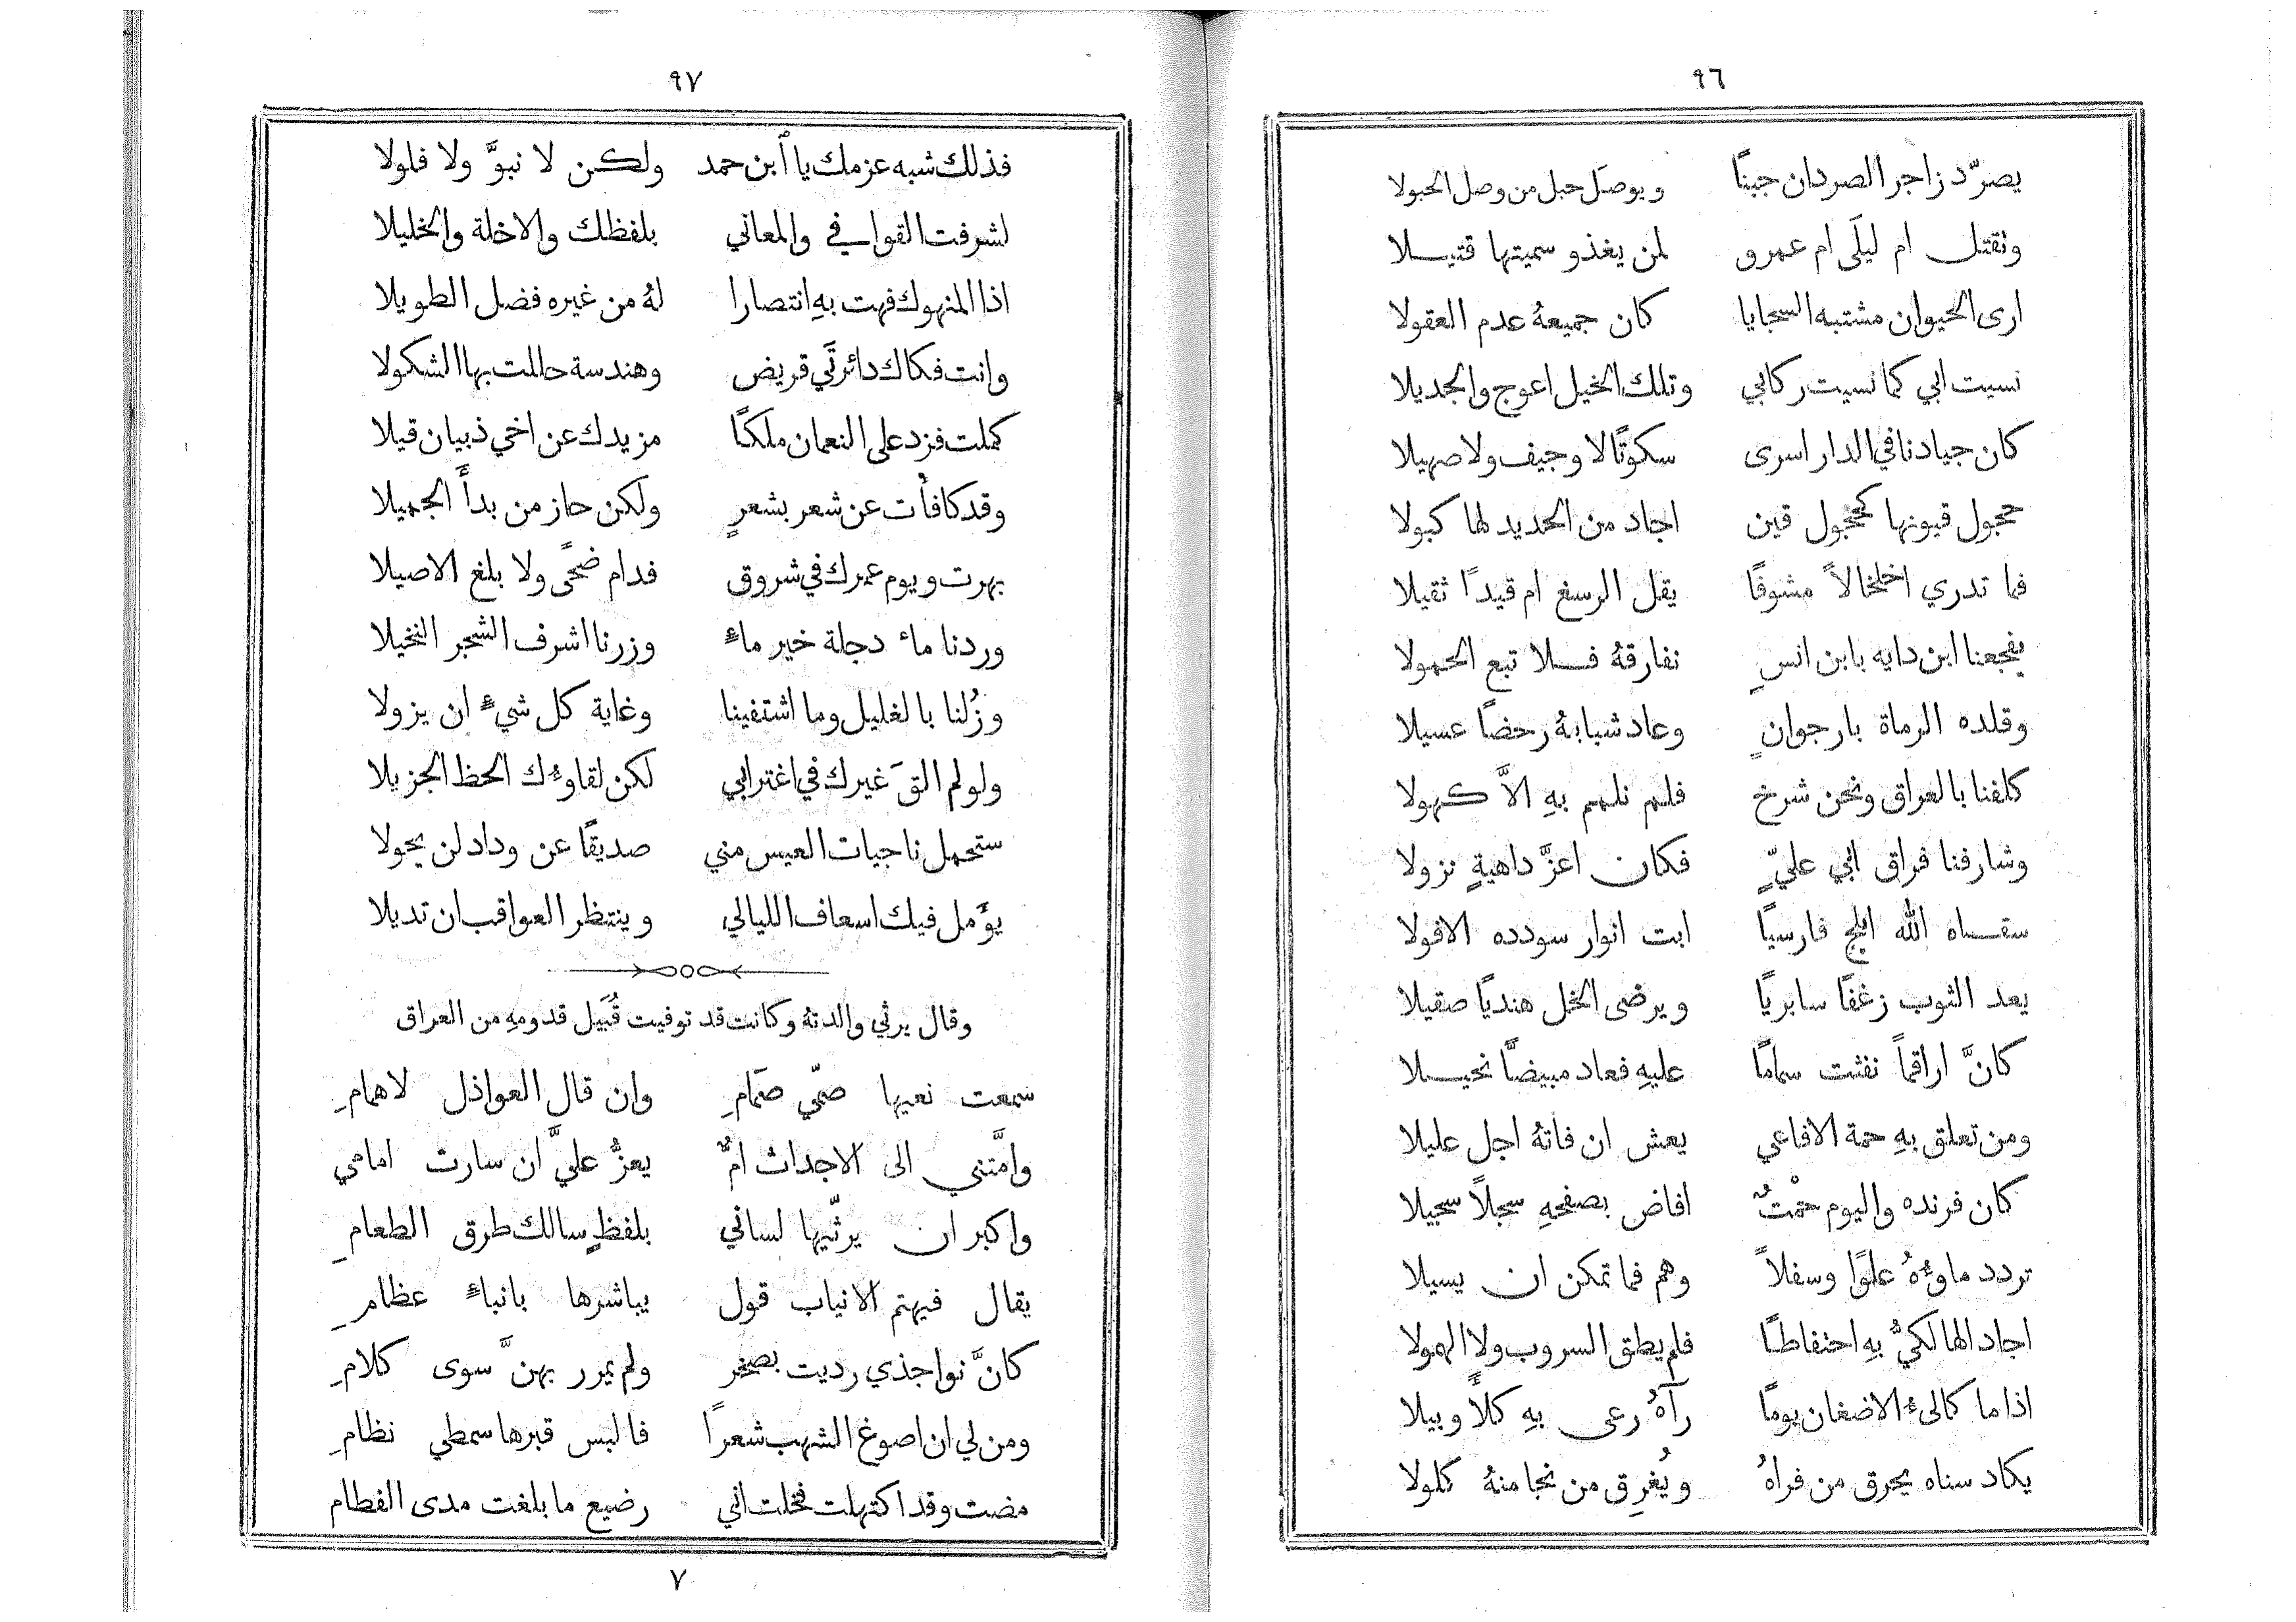 ٩٦
يصرّد زاجر الصردان جبنًا ويوصَل حبل من وصل الحبولا
وتقتل ام ليلَى ام عمرو لمن يغذو سميتها قتيلا
ارى الحيوان مشتبه السجايا كان جميعهُ عدم العقولا
نسيت ابي كما نسيت ركابي وتلك الخيل اعوج والجديلا
كان جيادنا في الدار اسرى سكوتًا لا وجيف ولا صهيلا
حجول قيونها كحجول قين اجاد من الحديد لها كبولا
فما تدري اخلخالاً مشوفًا يقل الرسغ ام قيدًا ثقيلا
يفجعنا ابن دايه بابن انسٍ نفارقهُ فلا تبع الحمولا
وقلده الرماة بارجوانٍ وعاد شبابهُ رحضًا عسيلا
كلفنا بالعراق ونحن شرخ فلم نلمم بهِ الاَّ كهولا
وشارفنا فراق ابي عليٍّ فكان اعزَّ داهيةٍ نزولا
سقاه الله ابلج فارسيًا ابت انوار سودده الافولا
يعد الثوب زغفًا سابريًا ويرضى الخل هنديًا صقيلا
كانَّ اراقمًا نفثت سمامًا عليهِ فعاد مبيضًّا نحيلا
ومن تعلق بهِ حمة الافاعي يعش ان فاتهُ اجل عليلا
كان فرنده واليوم حمْتٌ افاض بصفحهِ سجلاً سجيلا
تردد ماوءُهُ علوًا وسفلاً وهم فما تمكن ان يسيلا
اجاد الهالكيُّ بهِ احتفاظًا فلم يطق السروب ولا الهمولا
اذا ما كالىءُ الاضغان يومًا رآهُ رعى بهِ كلأً وبيلا
يكاد سناه يحرق من فراهُ ويُغرِق من نجا منهُ كلولا
٩٧
فذلك شبه عزمك يا أبن حمد ولكن لا نبوَّ ولا فلولا
لشرفت القوافي والمعاني بلفظك والاخلة والخليلا
اذا المنهوك فهت بهِ انتصارا لهُ من غيره فضل الطويلا
وانت فكاك دائرتَي قريض وهندسة حللت بها الشكولا
كملت فزد على النعمان ملكًا مزيدك عن اخي ذبيان قيلا
وقد كافأت عن شعر بشعرٍ ولكن حاز من بدأَ الجميلا
بهرت ويوم عمرك في شروق فدام ضحًى ولا بلغ الاصيلا
وردنا ماء دجلة خير ماءٍ وزرنا اشرف الشجر النخيلا
وزُلنا بالغليل وما اشتفينا وغاية كل شيءٍ ان يزولا
ولو لم القَ غيرك في اغترابي لكن لقاوءُك الحظ الجزيلا
ستحمل ناجيات العيس مني صديقًا عن وداد لن يحولا
يؤَمل فيك اسعاف الليالي وينتظر العواقب ان تديلا
وقال يرثي والدتهُ وكانت قد توفيت قُبَيل قدومهِ من العراق
سمعت نعيها صمّي صَمامِ وان قال العواذل لا همامِ
وامَّتني الى الاجداث امٌّ يعزُّ عليَّ ان سارت امامي
واكبر ان يرثّيها لساني بلفظٍ سالك طرق الطعامِ
يقال فيهتم الانياب قول يباشرها بانباءٍ عظامِ
كانَّ نواجذي رديت بصخر ولم يمرر بهنَّ سوى كلامِ
ومن لي ان اصوغ الشهب شعرًا فالبس قبرها سمطي نظامِ
مضت وقد اكتهلت فخلت اني رضيع ما بلغت مدى الفطام
٧